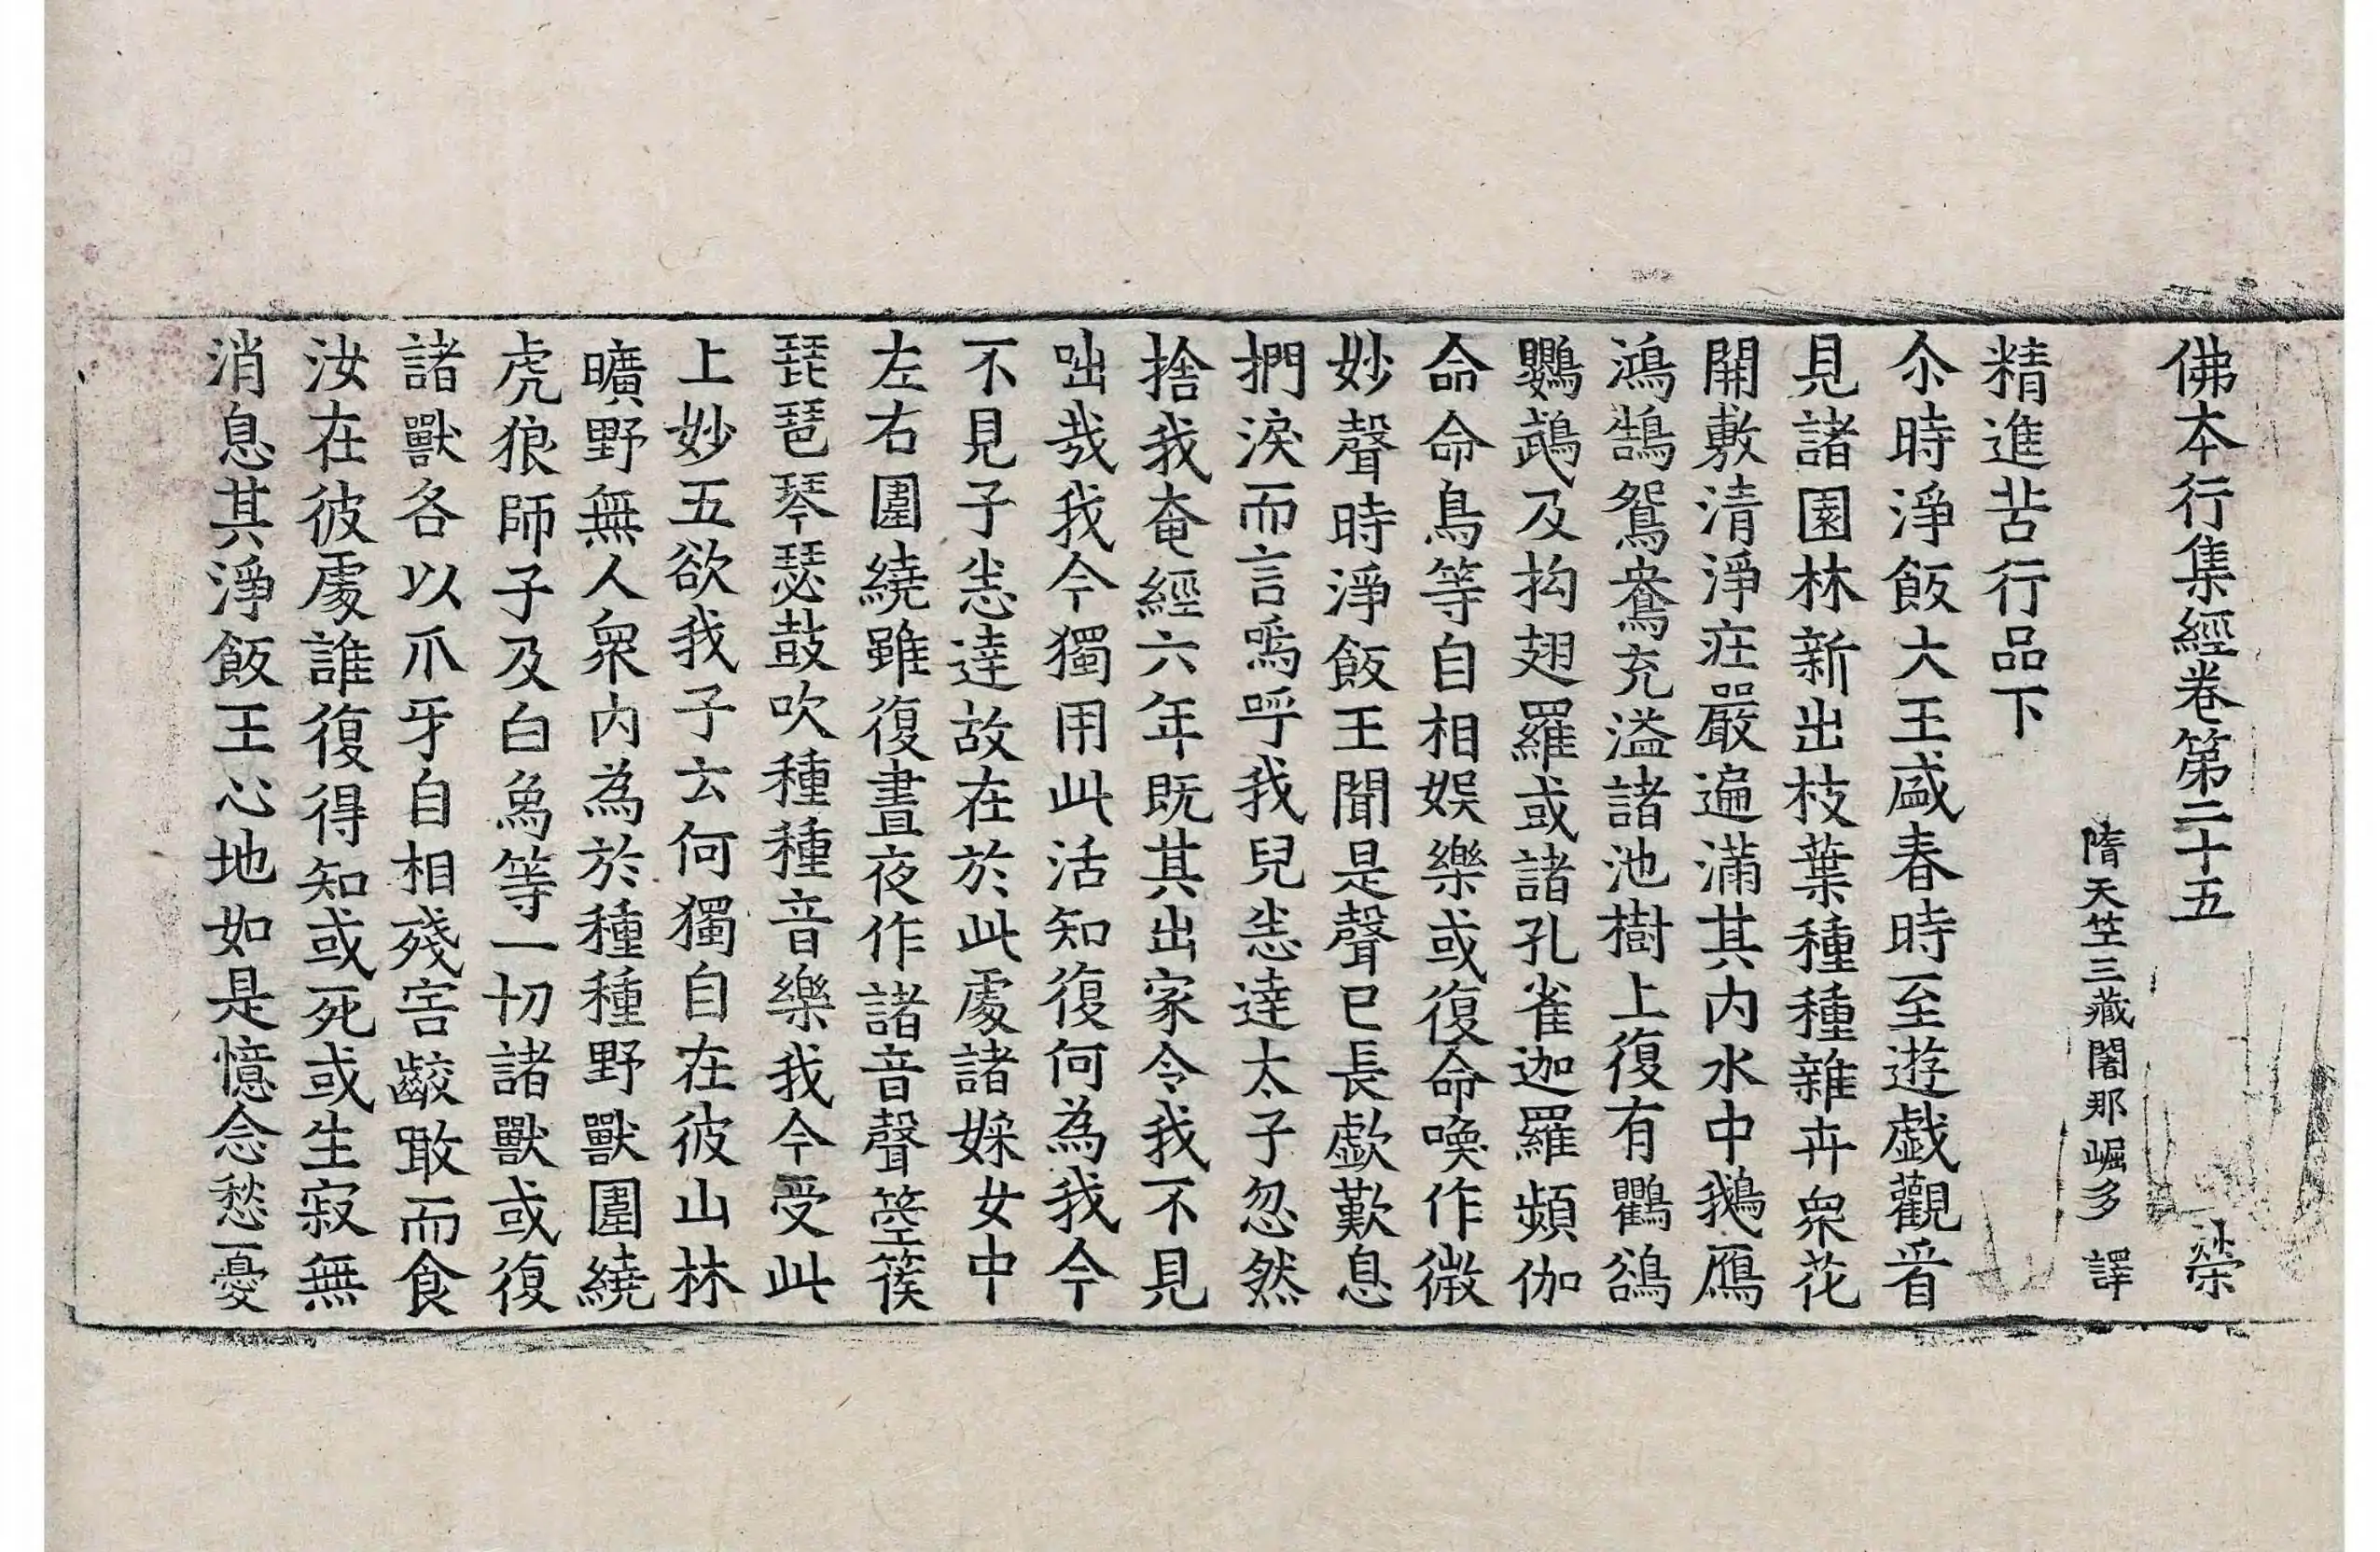 佛本行集經卷第二十五 榮
隋天竺三藏闍那崛多 譯
精進苦行品下
尒時淨飯大王盛春時至遊戲觀看
見諸園林新出枝葉種種雜卉衆花
開敷清淨莊嚴遍滿其内水中鵝鴈
鴻鵠鴛鴦充溢諸池樹上復有鸜鵒
鸚鵡及拘翅羅或諸孔雀迦羅頻伽
命命鳥等自相娛樂或復命喚作微
妙聲時淨飯王聞是聲已長歔歎息
捫淚而言嗚呼我兒悉達太子忽然
捨我奄經六年既其出家令我不見
咄哉我今獨用此活知復何為我今
不見子悉達故在於此處諸婇女中
左右圍繞雖復晝夜作諸音聲箜篌
琵琶琴瑟鼓吹種種音樂我今受此
上妙五欲我子云何獨自在彼山林
曠野無人衆内為於種種野獸圍繞
虎狼師子及白象等一切諸獸或復
諸獸各以爪牙自相殘害齩敢而食
汝在彼處誰復得知或死或生寂無
消息其淨飯王心地如是憶念愁憂